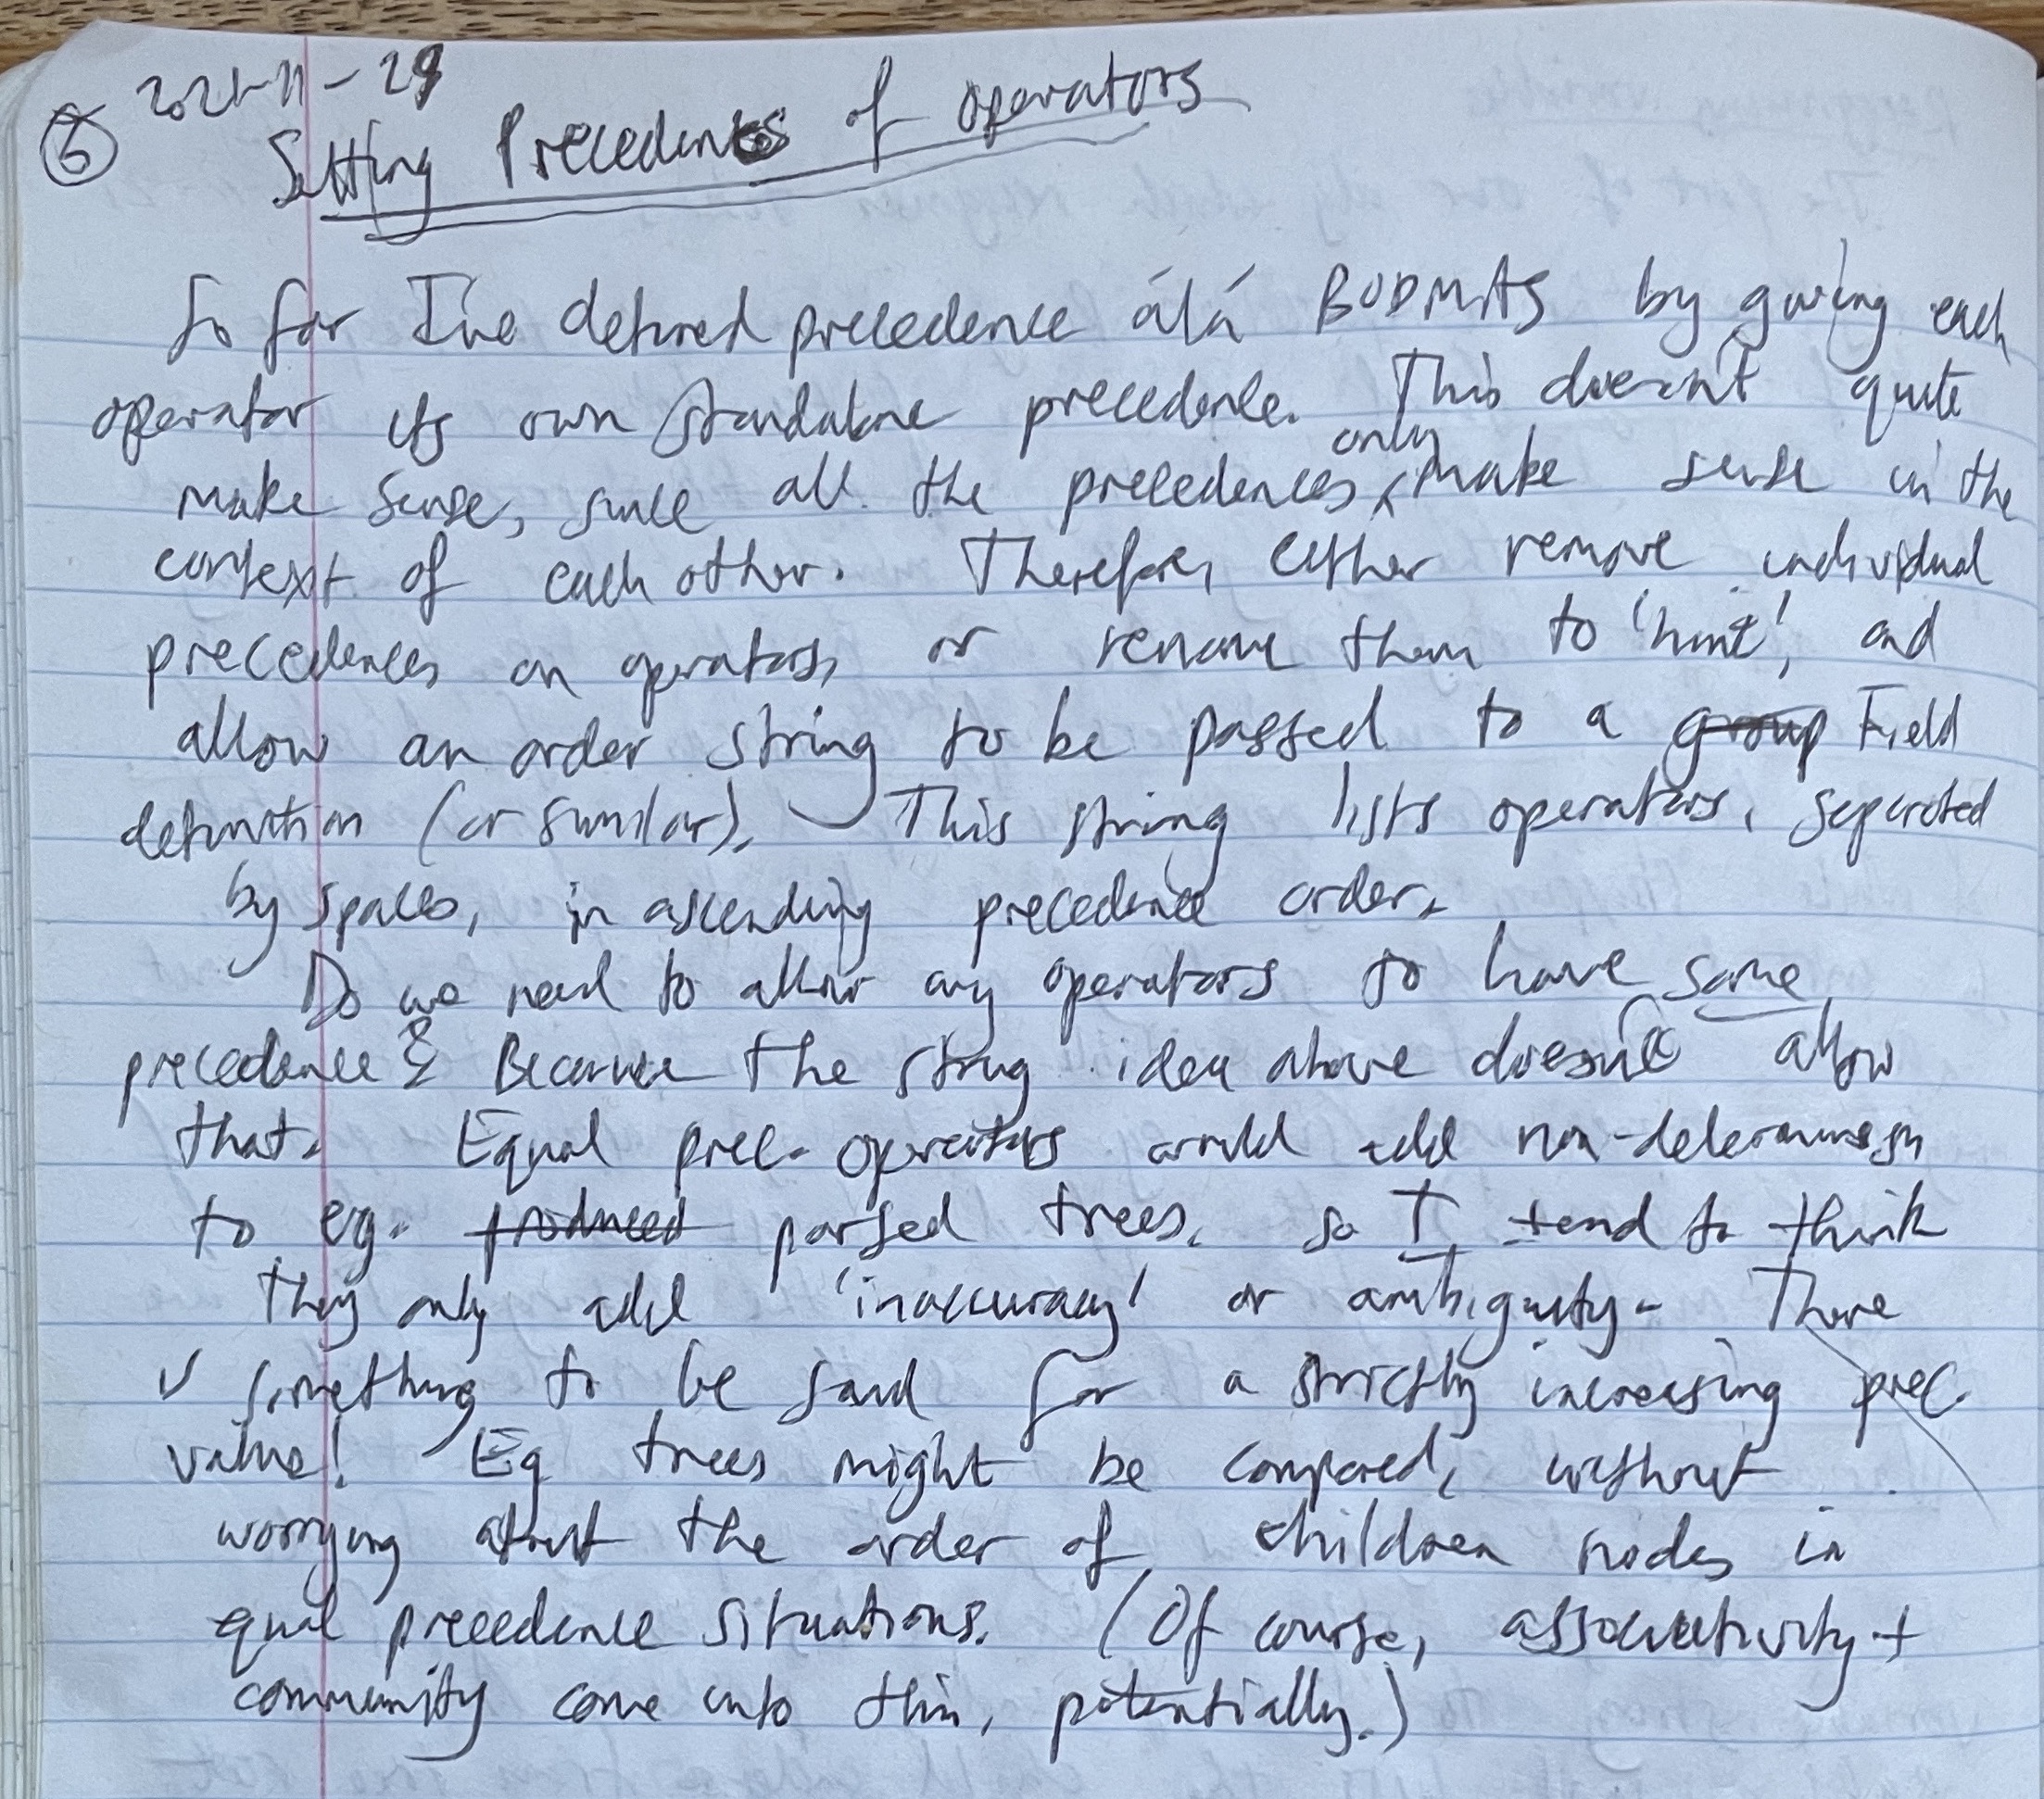 2021-11-29
⑥ Setting Precedences of operators
So far I've defined precedence álá BODMAS by giving each
operator its own standalone precedence. This doesn't quite
make sense, since all the precedences only make sense in the
context of each other. Therefore, either remove individual
precedences on operators, or rename them to 'hint', and
allow an order string to be passed to a group Field
definition (or similar). This string lists operators, separated
by spaces, in ascending precedence order.
Do we need to allow any operators to have same
precedence? Because the string idea above doesn't allow
that. Equal prec. operators would add non-determinism
to eg. produced parsed trees. So I tend to think
they only add 'inaccuracy' or ambiguity. There
is something to be said for a strictly increasing prec.
value! Eg trees might be compared, without
worrying about the order of children nodes in
equal precedence situations. (Of course, associativity +
community come into this, potentially.)